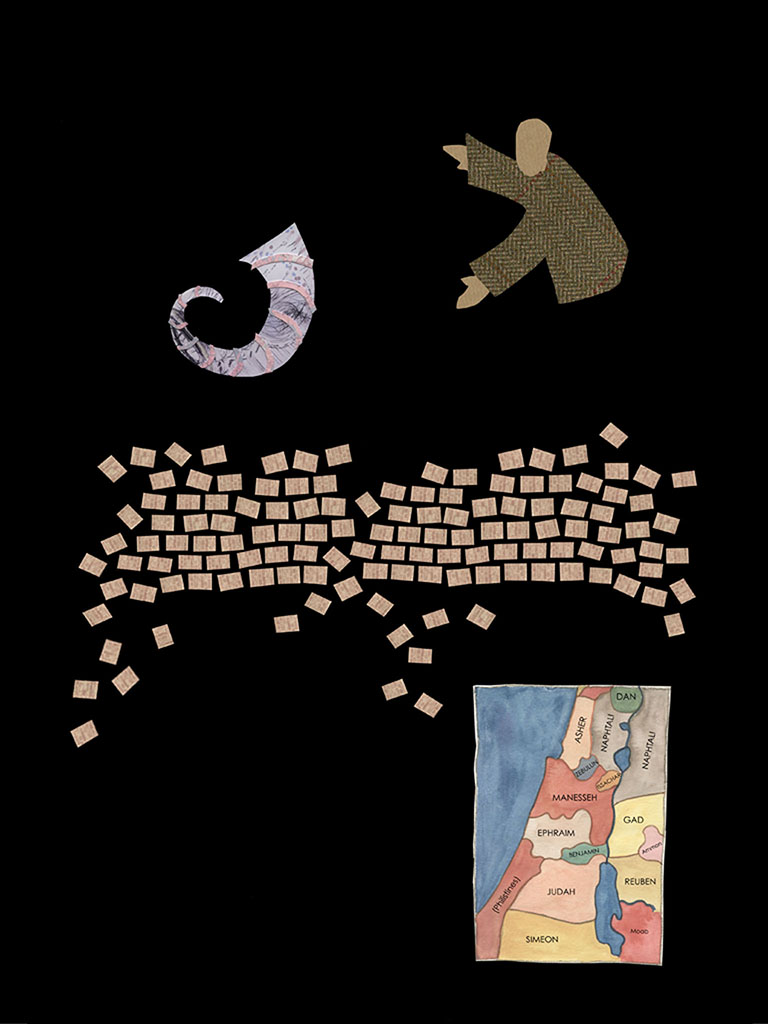 DAN
ASHER
NAPHTALI
NAPHTALI
ZEBULUN
ISSACHAR
MANESSEH
GAD
EPHRAIM
Ammon
BENJAMIN
REUBEN
(Philistines)
JUDAH
Moab
SIMEON